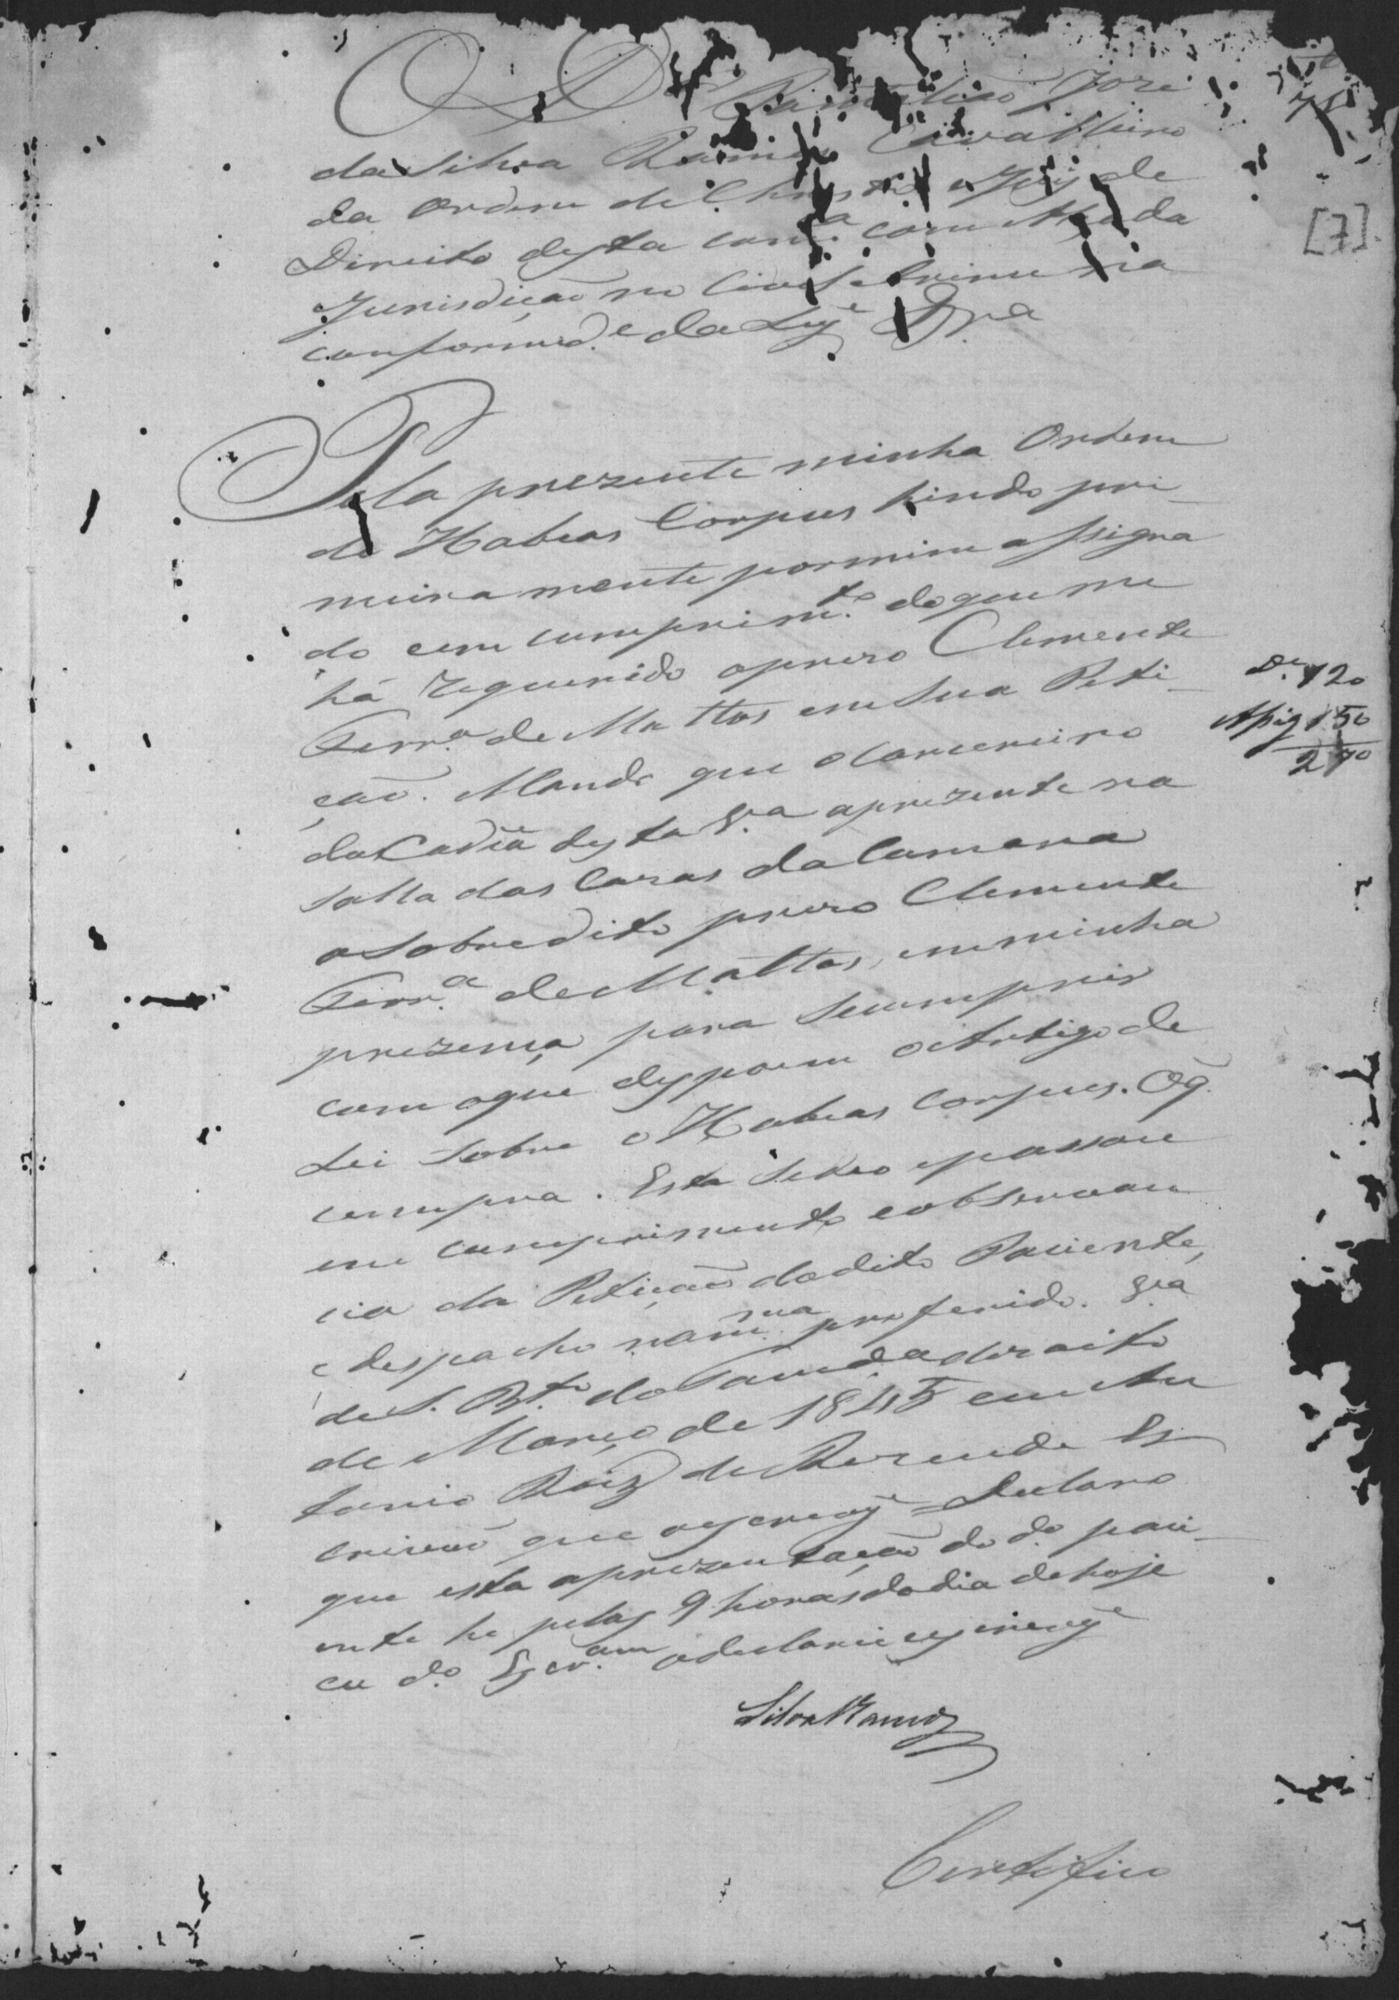 O D.or José
da Silva Ramos Cavalleiro
da Ordem de Christo e Juiz de
Direito desta com.ca com Alçada
Jurisdição no Civel e Crime na
conformid.e da Ley &.ra
[7]
Pela prezente minha Ordem
de Habeas Corpus hindo pri-
meiramente por mim assigna
do em cumprim.to do que me
há requerido o prezo Clemente
Ferr.a de Mattos em sua Peti-
ção. Mando que o Carcereiro
da Cadêa desta V.a aprezente na
salla das Cazas da Camara
o sobredito prezo Clemente
Ferr.a de Mattos, em minha
prezença para se cumprir
com o que dyspoem o Artigo de
Lei sobre o Habeas Corpus. O q.
cumpra. Esta se deo e passou
em cumprimento e observan
cia da Petição do dito Paciente,
e despacho na m.ma proferido. V.a
de S. B.to do Tamd.a dezoito
de Março de 1845 eu An
tonio Roiz de Rezende Es
crivão que o escrevy = Declaro
que esta aprezentação do d.o paci-
ente he pelas 9 horas do dia de hoje
eu d.o Escr.am o declarei e escrevy
D.e 120
Assig 150
270
Silva Ramos
Certifico